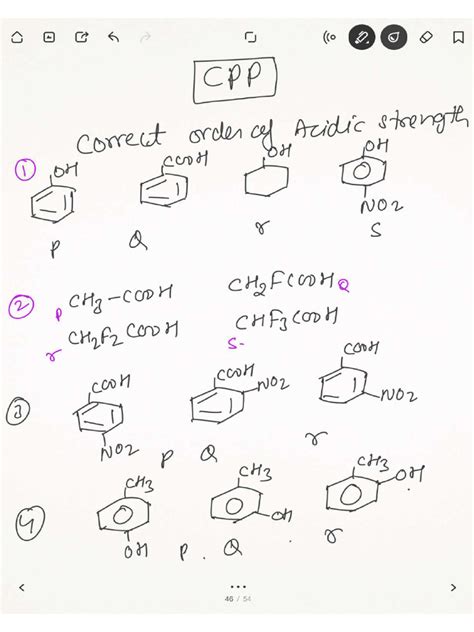 CPP
Correct order of Acidic strength
① OH COOH OH OH
NO2
P Q r S
② P CH3-COOH CH2FCOOH Q
r CH2F2COOH CHF3COOH
S-
③ COOH COOH NO2 COOH NO2
NO2 P Q r
④ CH3 CH3 OH CH3 OH
OH P. Q. r
46 / 54